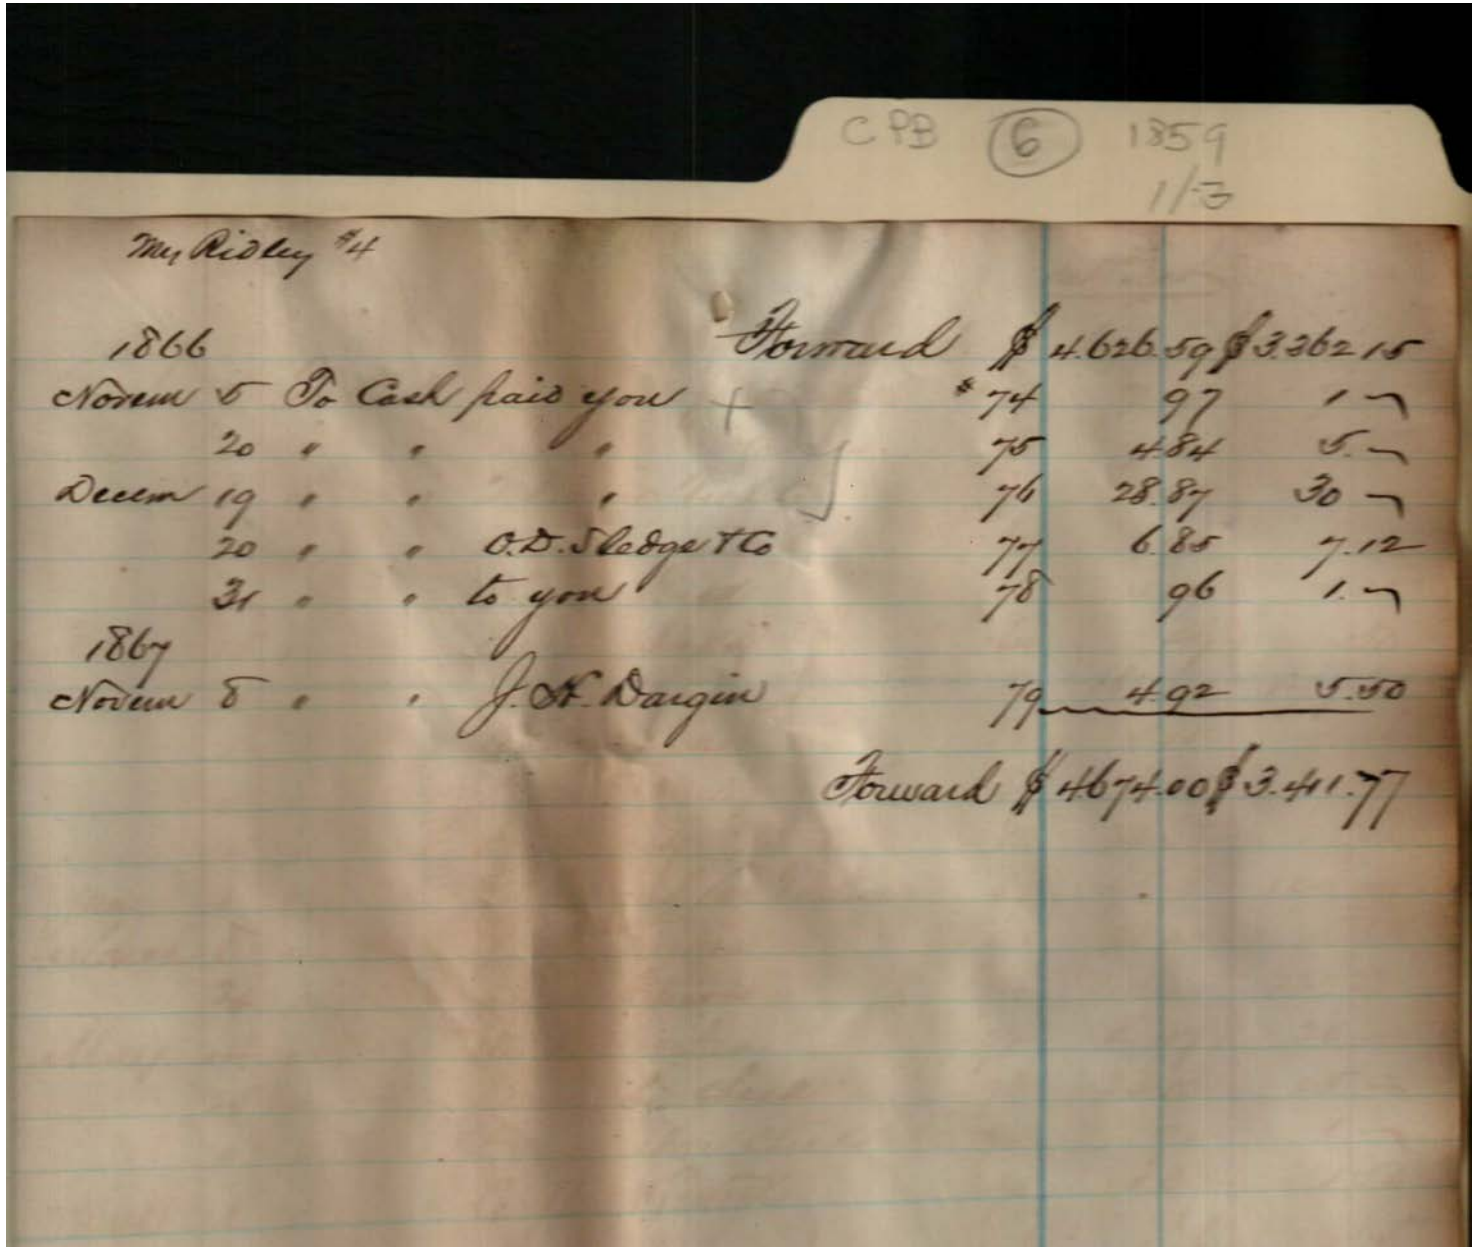 CPB 6 1859
1/3
Mrs Ridley #4
1866 Forward $ 4.626.59 $ 3.362 15
Novem 5 To Cash paid you # 74 97 1 ¬
20 " " " 75 4.84 5. ¬
Decem 19 " " " 76 28.87 30 ¬
20 " " O.D. Sledge & Co 77 6.85 7.12
31 " " to you 78 96 1. ¬
1867
Novem 8 " " J. H. Dargin 79 4.92 5.50
Forward $ 4674.00 $ 3.411.77